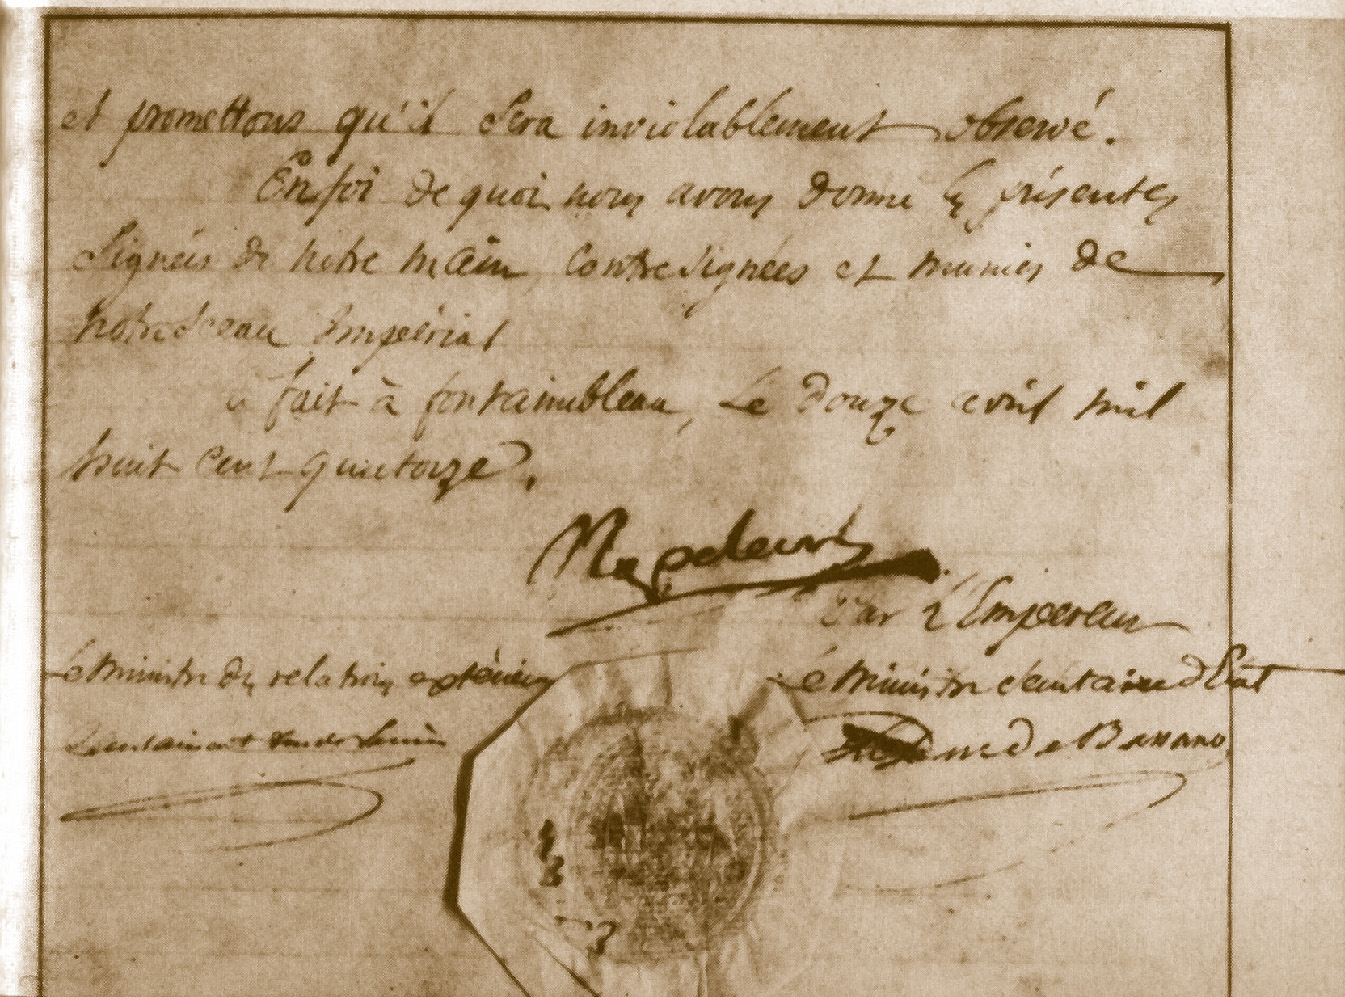 et promettons qu'il sera inviolablement observé.
En foi de quoi nous avons donné les présentes
signées de notre main, contresignées et munies de
notre sceau Impérial
fait à fontainebleau, Le douze avril mil
huit cent quatorze.
Napoleon
Par l'Empereur
Le Ministre des relations extérieures
Le Ministre secretaire d'Etat
Caulaincourt duc de Vicence
Le Duc de Bassano